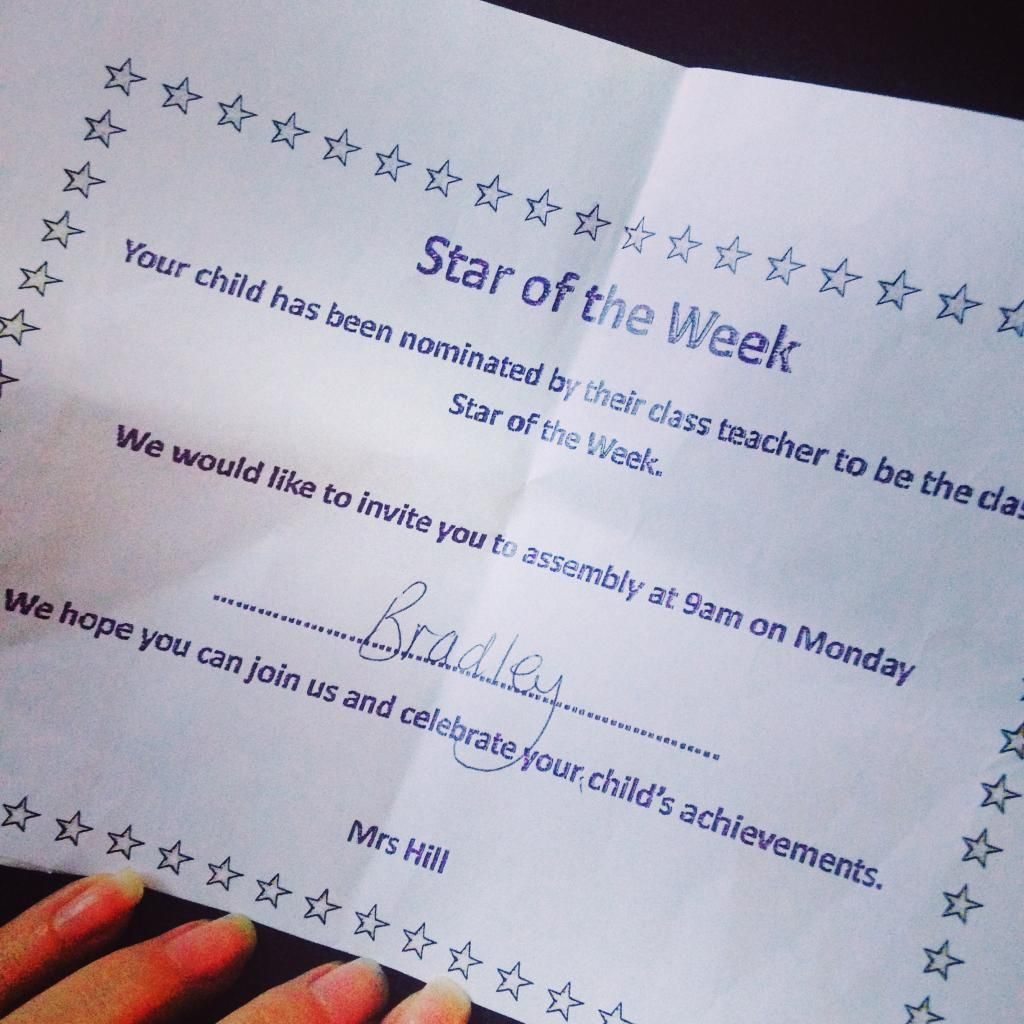 Star of the Week
Your child has been nominated by their class teacher to be the
Star of the Week.
We would like to invite you to assembly at 9am on Monday
Bradley
We hope you can join us and celebrate your child's achievements.
Mrs Hill